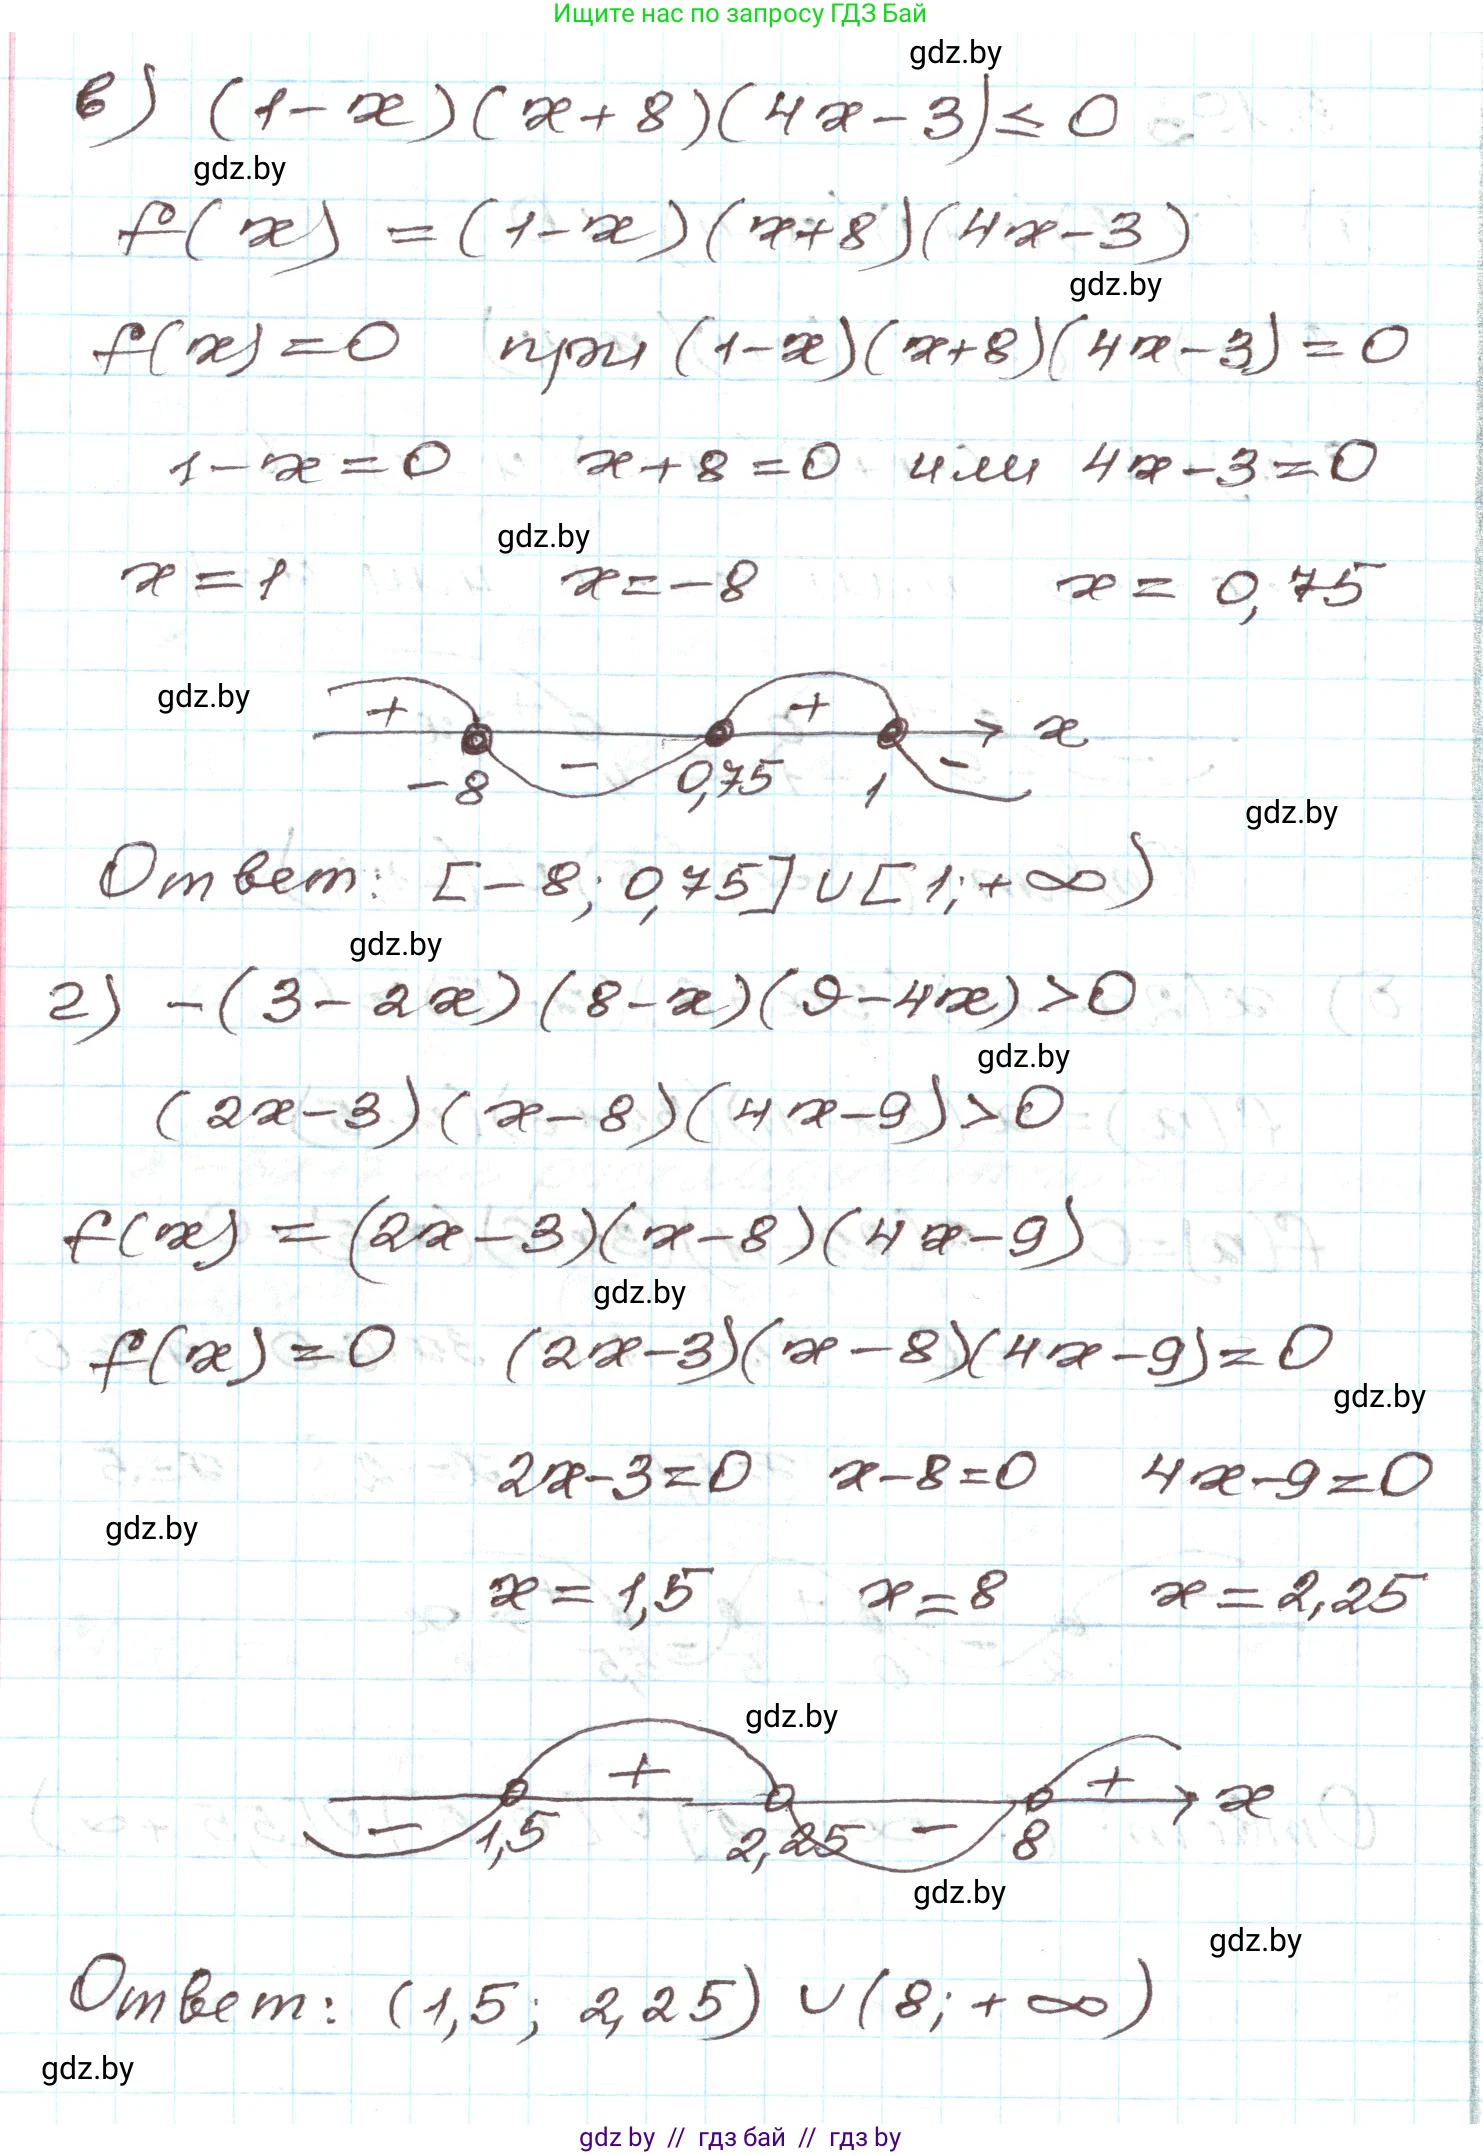 Ищите нас по запросу ГДЗ Бай
gdz.by
в) (1-x)(x+8)(4x-3)≤0
gdz.by
f(x) = (1-x)(x+8)(4x-3)
gdz.by
f(x)=0 при (1-x)(x+8)(4x-3)=0
1-x=0 x+8=0 или 4x-3=0
gdz.by
x=1 x=-8 x= 0,75
gdz.by
+ - + - x
-8 0,75 1
gdz.by
Ответ: [-8; 0,75]∪[1;+∞)
gdz.by
г) -(3-2x)(8-x)(9-4x)>0
gdz.by
(2x-3)(x-8)(4x-9)>0
f(x) =(2x-3)(x-8)(4x-9)
gdz.by
f(x)=0 (2x-3)(x-8)(4x-9)=0
gdz.by
2x-3=0 x-8=0 4x-9=0
gdz.by
x=1,5 x=8 x=2,25
gdz.by
- + - + x
1,5 2,25 8
gdz.by
gdz.by
Ответ: (1,5; 2,25) ∪(8;+∞)
gdz.by
gdz by // гдз бай // гдз by